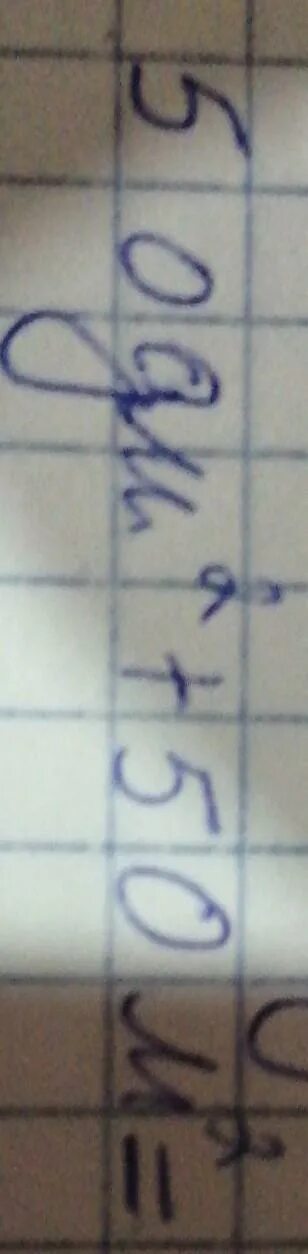 50 дм² + 50 м² =